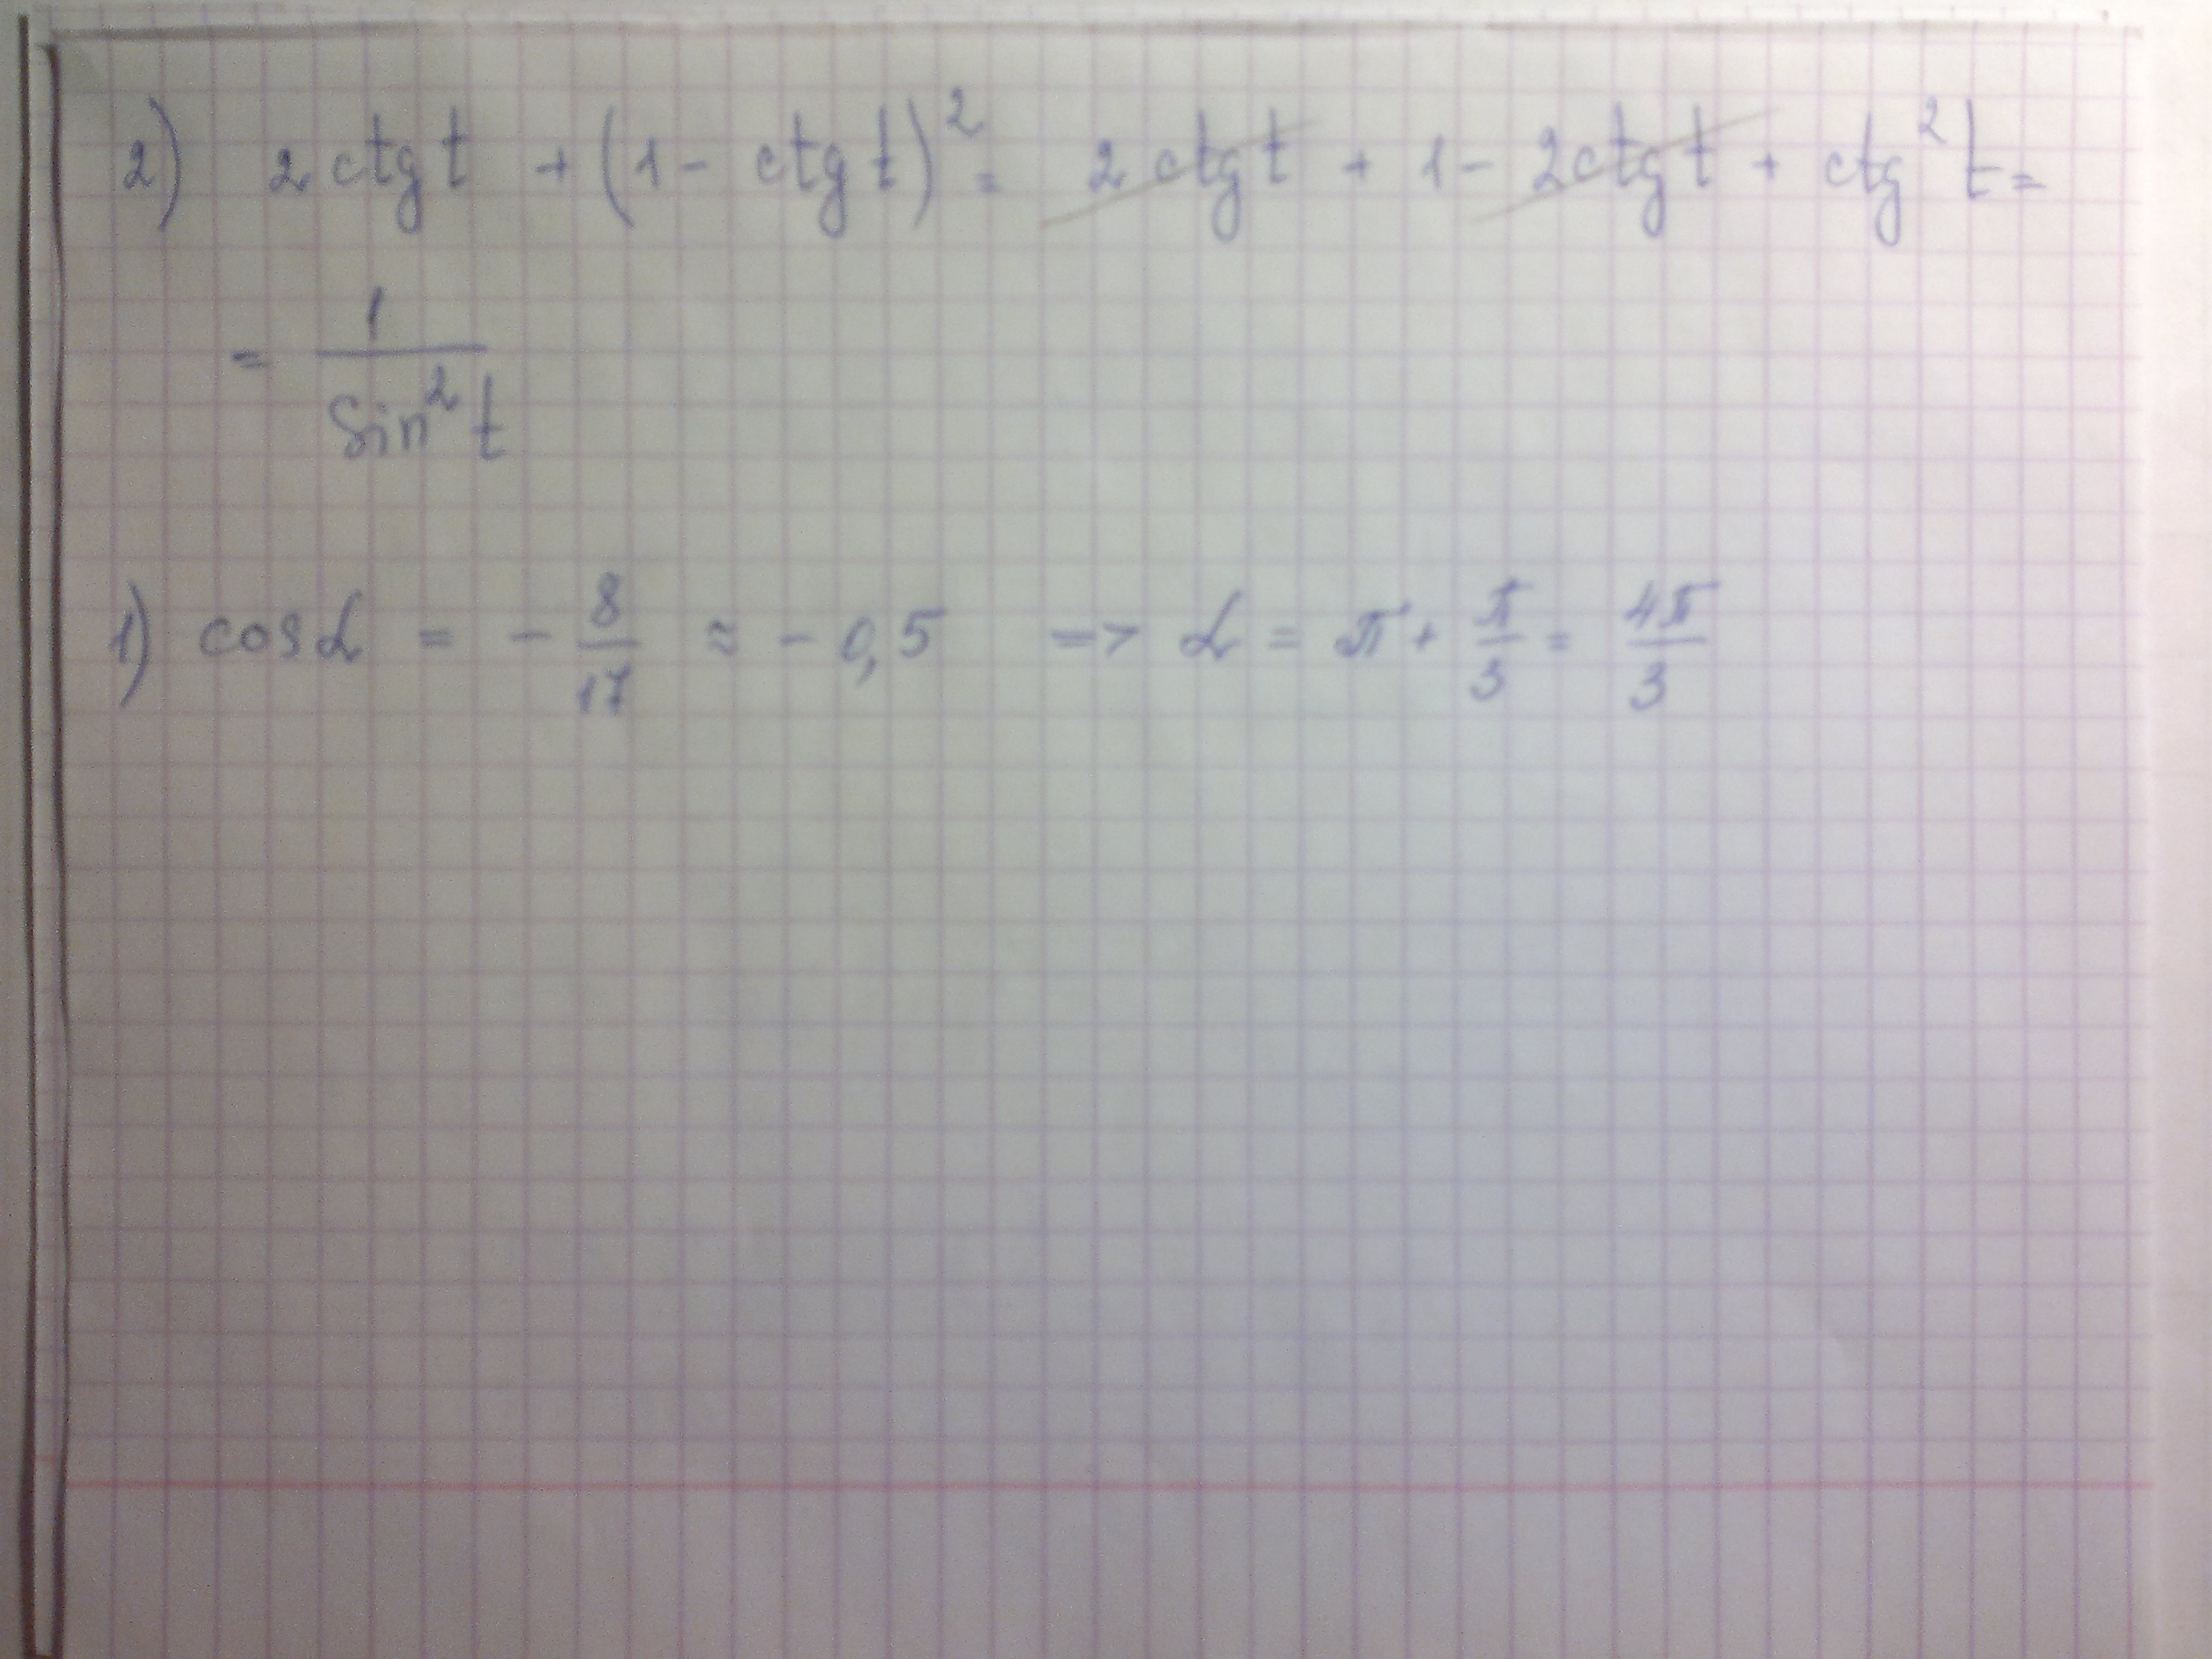 2) 2 ctg t + (1 - ctg t)² = 2 ctg t + 1 - 2 ctg t + ctg² t =
= 1 / sin² t
1) cos α = - 8/17 ≈ - 0,5 => α = π + π/3 = 4π/3